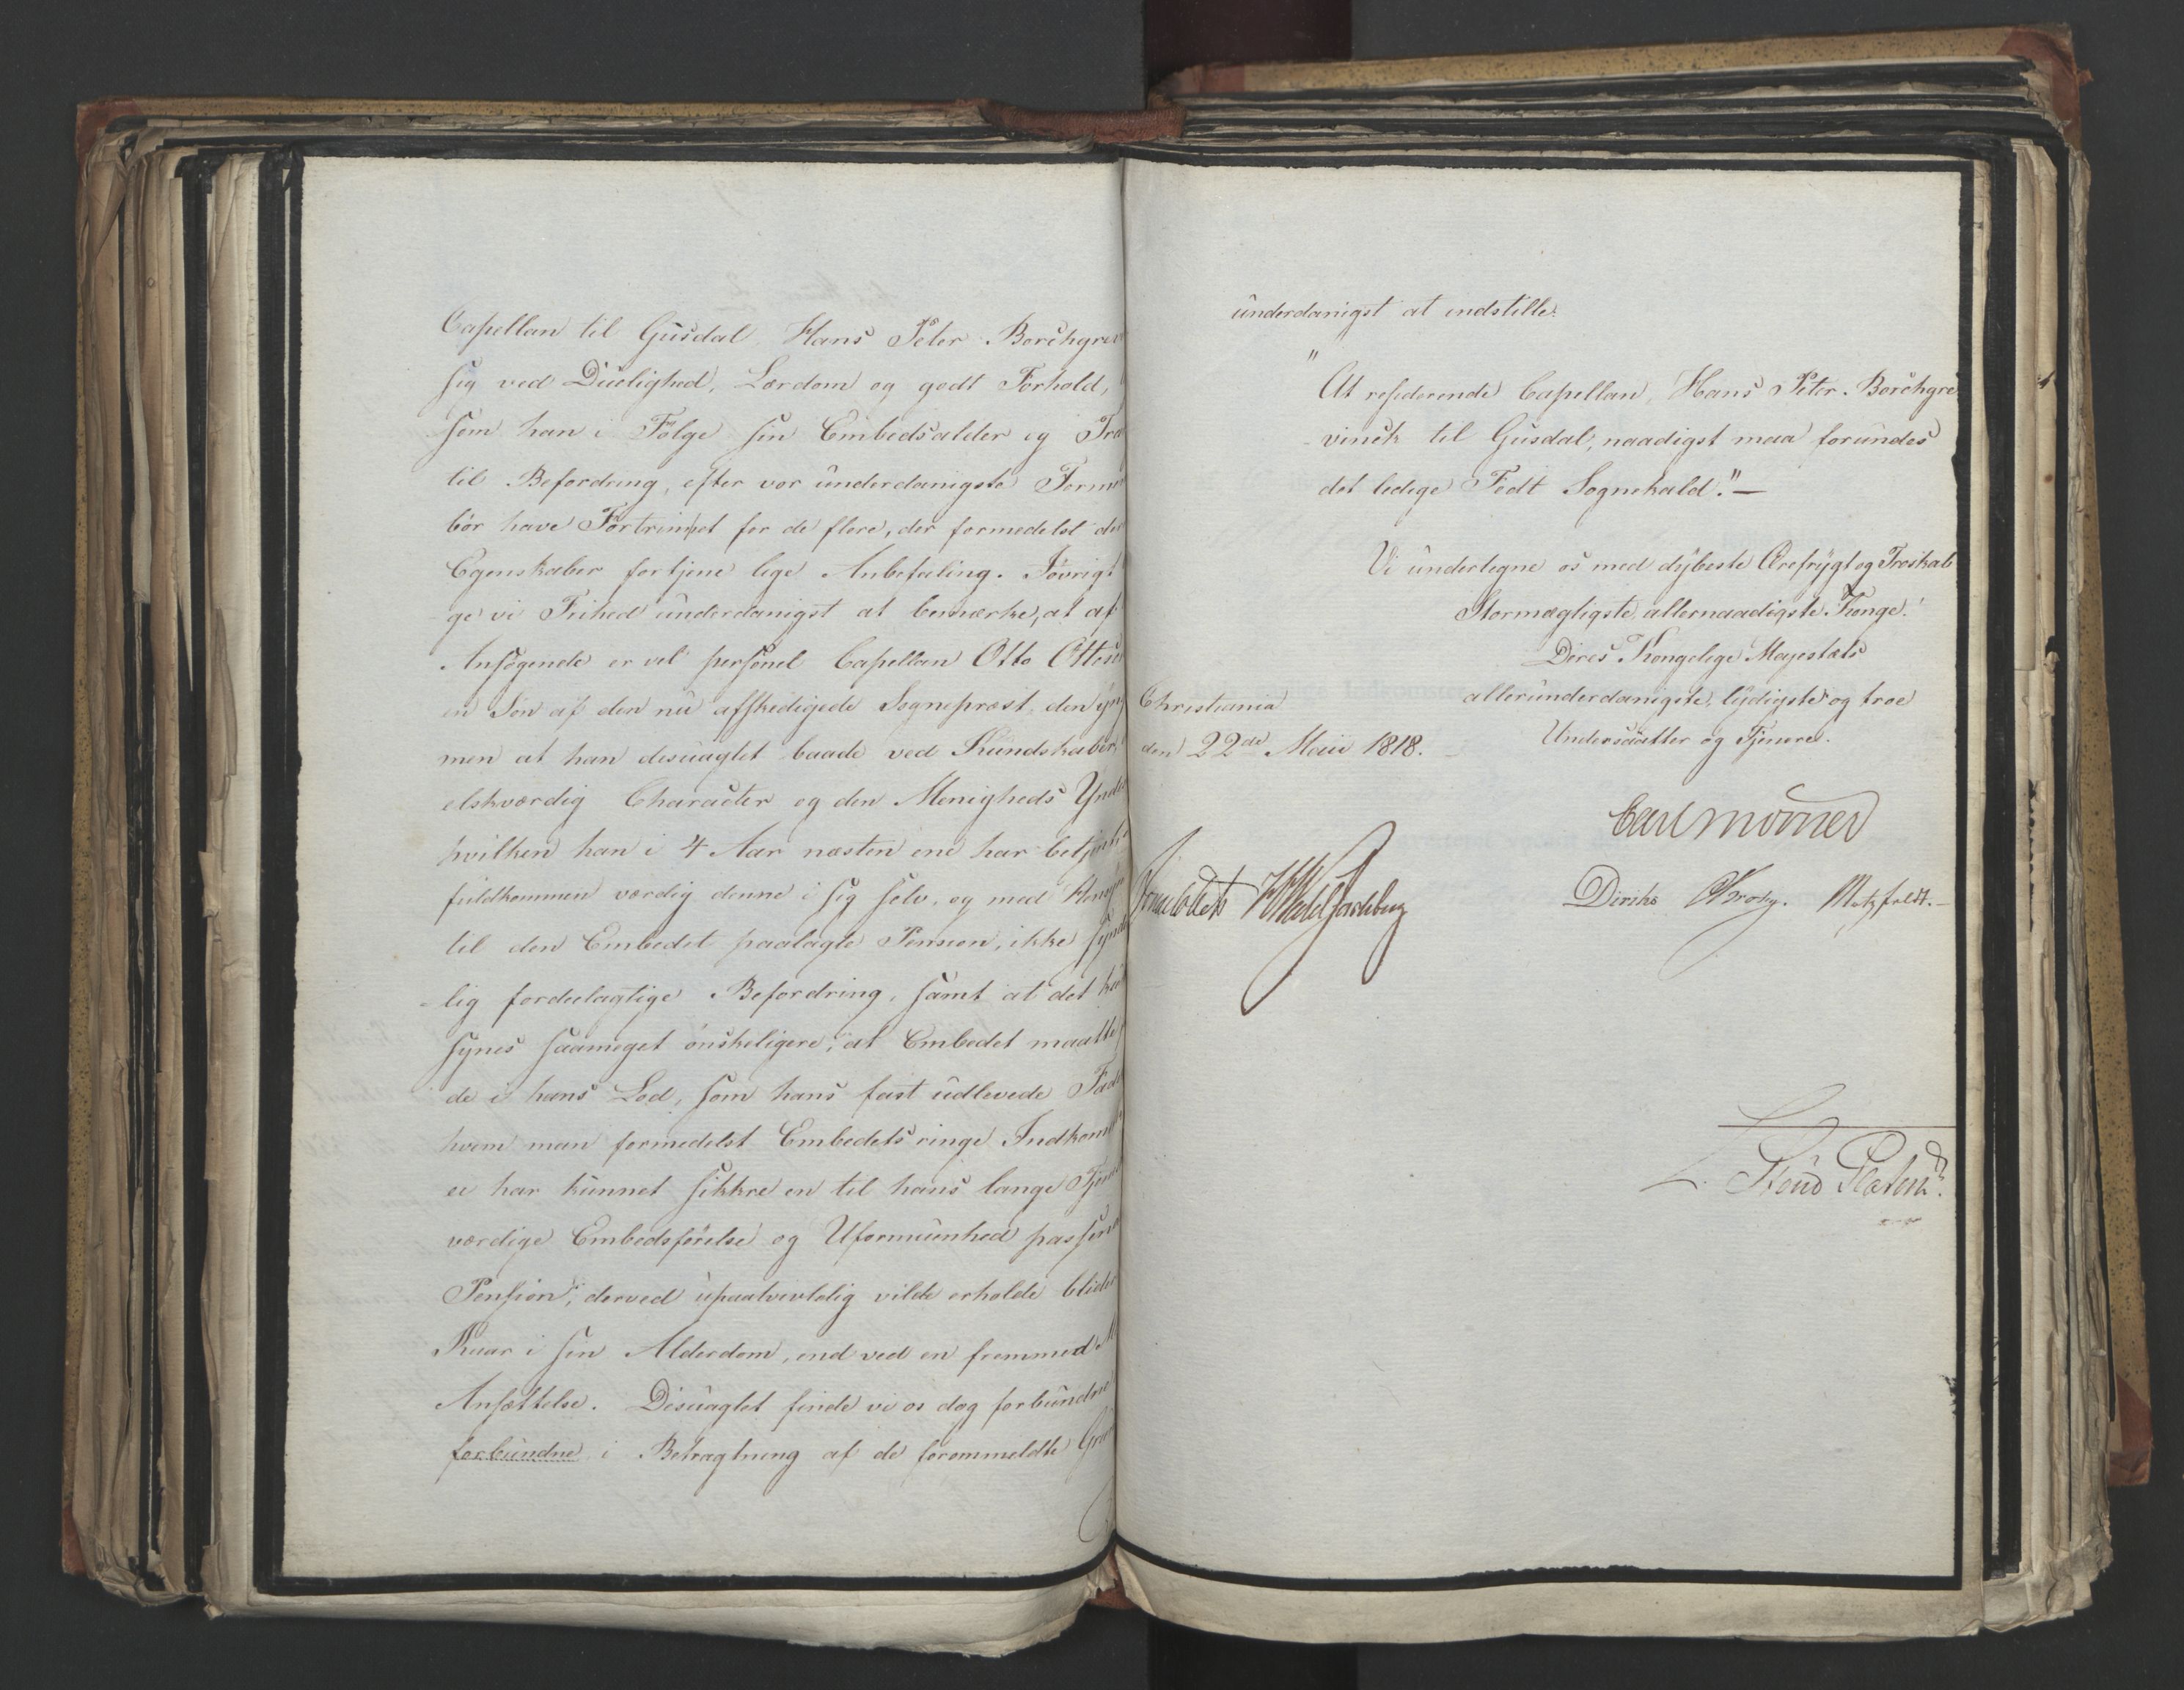 Capellan til Gusdal, Hans Peter Borchgrev
sig ved Duelighed, Lærdom og godt Forhold,
som han i Følge sin Embedsalder og Tra
til Befordring, efter vor underdanigste Forme
bør have Fortrinnet for de flere, der formedelst de
Egenskaber fortjene lige Anbefaling. Iøvrigt
ge vi Frihed underdanigst at bemærke, at af
Ansøgende er vel personel Capellan Otto Ottesen
en Søn af den nu afskedigede Sognepræst, den yng
men at han desuagtet baade ved Kundskaber,
elskværdig Character og den Menigheds Ynde
hvilken han i 4 Aar næsten ene har betjent
fuldkommen værdig denne i sig selv, og med Hensy
til den Embedet paalagte Pension, ikke synd
-lig fordeelagtige Befordring, samt at det
synes saameget ønskeligere, at Embedet maatte
de i hans Lod, som hans fast udlevede Fade
hvem man formedelst Embedets ringe Indkom
ei har kunnet sikkre en til hans lange Tjene
værdige Embedsførelse og Uformuenhed passen
Pension, derved upaatvivlelig vilde erholde blider
Kaar i sin Alderdom, end ved en fremmed M
Ansættelse. Desuagtet finde vi os dog forbundne
forbundne i Betragtning af de forommeldte Gru
underdanigst at indstille:
"At residerende Capellan, Hans Peter Borchgre
-vinck til Gusdal, naadigst maa forundes
det ledige Fedt Sognekald." —
Vi underlegne os med dybeste Ærefrygt og Troskab
Stormægtigste, allernaadigste Konge!
Deres Kongelige Majestæts
allerunderdanigste, lydigste og troe
Undersaatter og Tjenere.
Christiania
den 22de Maii 1818.
Carl Mörner
Diriks Krohg. Motzfeldt.